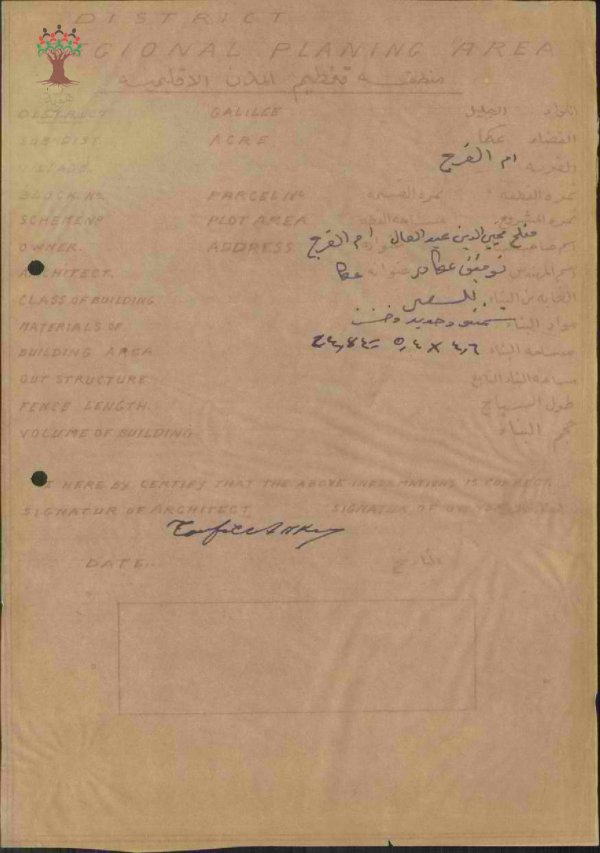 DISTRICT
REGIONAL PLANING AREA
منطقة تنظيم المدن الاقليمية
هوية
DISTRICT GALILEE اللواء الجليل
SUB-DIST. ACRE القضاء عكا
VILLAGE. القرية ام الفرج
BLOCK No PARCEL No نمرة القطعة نمرة القسيمة
SCHEME No PLOT AREA نمرة المشروع مساحة القطعة
OWNER. ADDRESS اسم صاحب مفلح محيي الدين عبد العال ام الفرج
ARCHITECT. اسم المهندس توفيق عكاوي عنوانه عكا
CLASS OF BUILDING الغاية من البناء للسكن
MATERIALS OF. مواد البناء شمنتو وحديد وخشب
BUILDING AREA مساحة البناء ٤,٦ × ٥,٤ = ٢٤,٨٤
OUT STRUCTURE مساحة البناء التابع
FENCE LENGTH. طول السياج
VOLUME OF BUILDING حجم البناء
I HERE BY CERTIFY THAT THE ABOVE INFORMATIONS IS CORRECT.
SIGNATUR OF ARCHITECT SIGNATUR OF OWNER
DATE. التاريخ